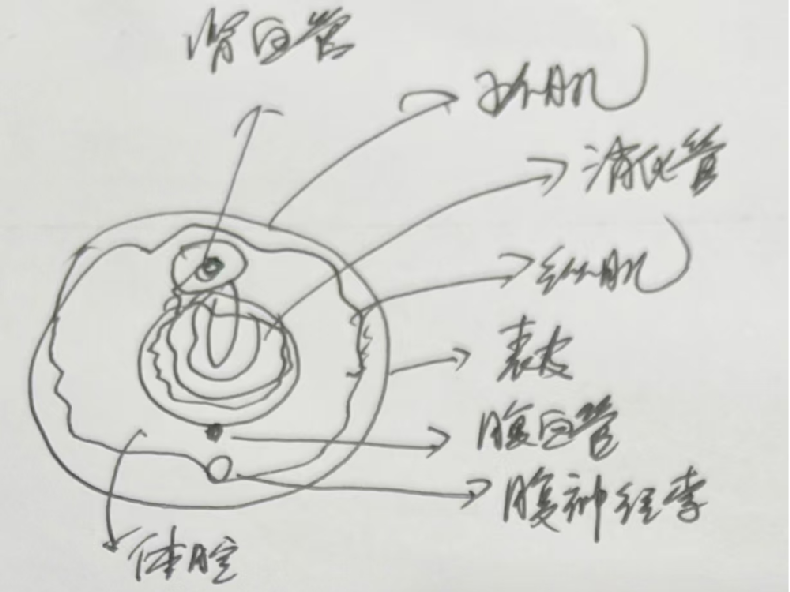 背血管
环肌
消化管
纵肌
表皮
腹血管
腹神经索
体腔